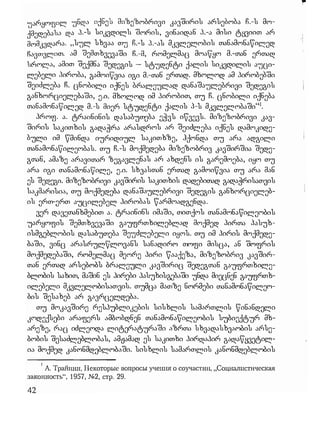 უარყოფილ უნდა იქნეს მიზეზობრივი კავშირის არსებობა ჩ.-ს მო-
ქმედებასა და პ.-ს სიკვდილს შორის, ვინაიდან პ.-ა მისი ტყვიით არ
მომკვდარა. „სულ სხვაა თუ ჩ.-ს პ.-ას მკვლელობის თანამონაწილედ
ჩავთვლით. ამ შემთხვევაში ჩ.-მ, რომელმაც მოიწყო მ.-თან ერთად
სროლა, ამით შექმნა შედეგის — სტუდენტი ქალის სიკვდილის აუცი-
ლებელი პირობა, გამოიწვია იგი მ.-თან ერთად. მხოლოდ ამ პირობებში
შეიძლება ჩ. ცნობილი იქნეს ბრალეულად დანაშაულებრივი შედეგის
განხორციელებაში, ე.ი. მხოლოდ იმ პირობით, თუ ჩ. ცნობილი იქნება
თანამონაწილედ მ.-ს მიერ სტუდენტი ქალის პ-ს მკვლელობაში"¹.
პროფ. ა. ტრაინინის დასაბუთება ეჭვს იწვევს. მიზეზობრივი კავ-
შირის საკითხის გადაჭრა არასდროს არ შეიძლება იქნეს დამოკიდე-
ბული იმ წმინდა იურიდიულ საკითხზე, ჰქონდა თუ არა ადგილი
თანამონაწილეობას. თუ ჩ.-ს მოქმედება მიზეზობრივ კავშირშია შედე-
გთან, ამაზე არავითარ ზეგავლენას არ ახდენს ის გარემოება, იყო თუ
არა იგი თანამონაწილე, ე.ი. სხვასთან ერთად გამოიწვია თუ არა მან
ეს შედეგი. მიზეზობრივი კავშირის საკითხის დადებითად გადაჭრისათვის
საკმარისია, თუ მოქმედება დანაშაულებრივი შედეგის განხორციელებ-
ის ერთ-ერთ აუცილებელ პირობას წარმოადგენდა.
ვერ დავეთანხმებით ა. ტრაინინს იმაში, თითქოს თანამონაწილეობის
უარყოფის შემთხვევაში გაუფრთხილებლად მოქმედ პირთა პასუხ-
ისმგებლობის დასაბუთება შეუძლებელი იყოს. თუ იმ პირის მოქმედე-
ბაში, ვინც არასრულწლოვანს სანადირო თოფი მისცა, ან შოფრის
მოქმედებაში, რომელმაც მეორე პირი წააქეზა, მიზეზობრივ კავშირ-
თან ერთად არსებობს ბრალეული კავშირიც შედეგთან გაუფრთხილე-
ბლობის სახით, მაშინ ეს პირები პასუხისგებაში უნდა მიეცნენ გაუფრთხ-
ილებელი მკვლელობისათვის, თუმცა მათზე ნორმები თანამონაწილეო-
ბის შესახებ არ გავრცელდება.
თუ მოკავშირე რესპუბლიკების სისხლის სამართლის წინანდელი
კოდექსები არაფერს ამბობდნენ თანამონაწილეობის სუბიექტურ მხ-
არეზე, რაც იძლეოდა ლიტერატურაში აზრთა სხვადასხვაობის არსე-
ბობის შესაძლებლობას, ამჟამად ეს საკითხი პირდაპირ გადაწყვეტილ-
ია მოქმედ კანონმდებლობაში. სისხლის სამართლის კანონმდებლობის
¹ А. Трайнин, Некоторые вопросы учения о соучастии, „Социалистическая
законность“, 1957, №2, стр. 29.
42